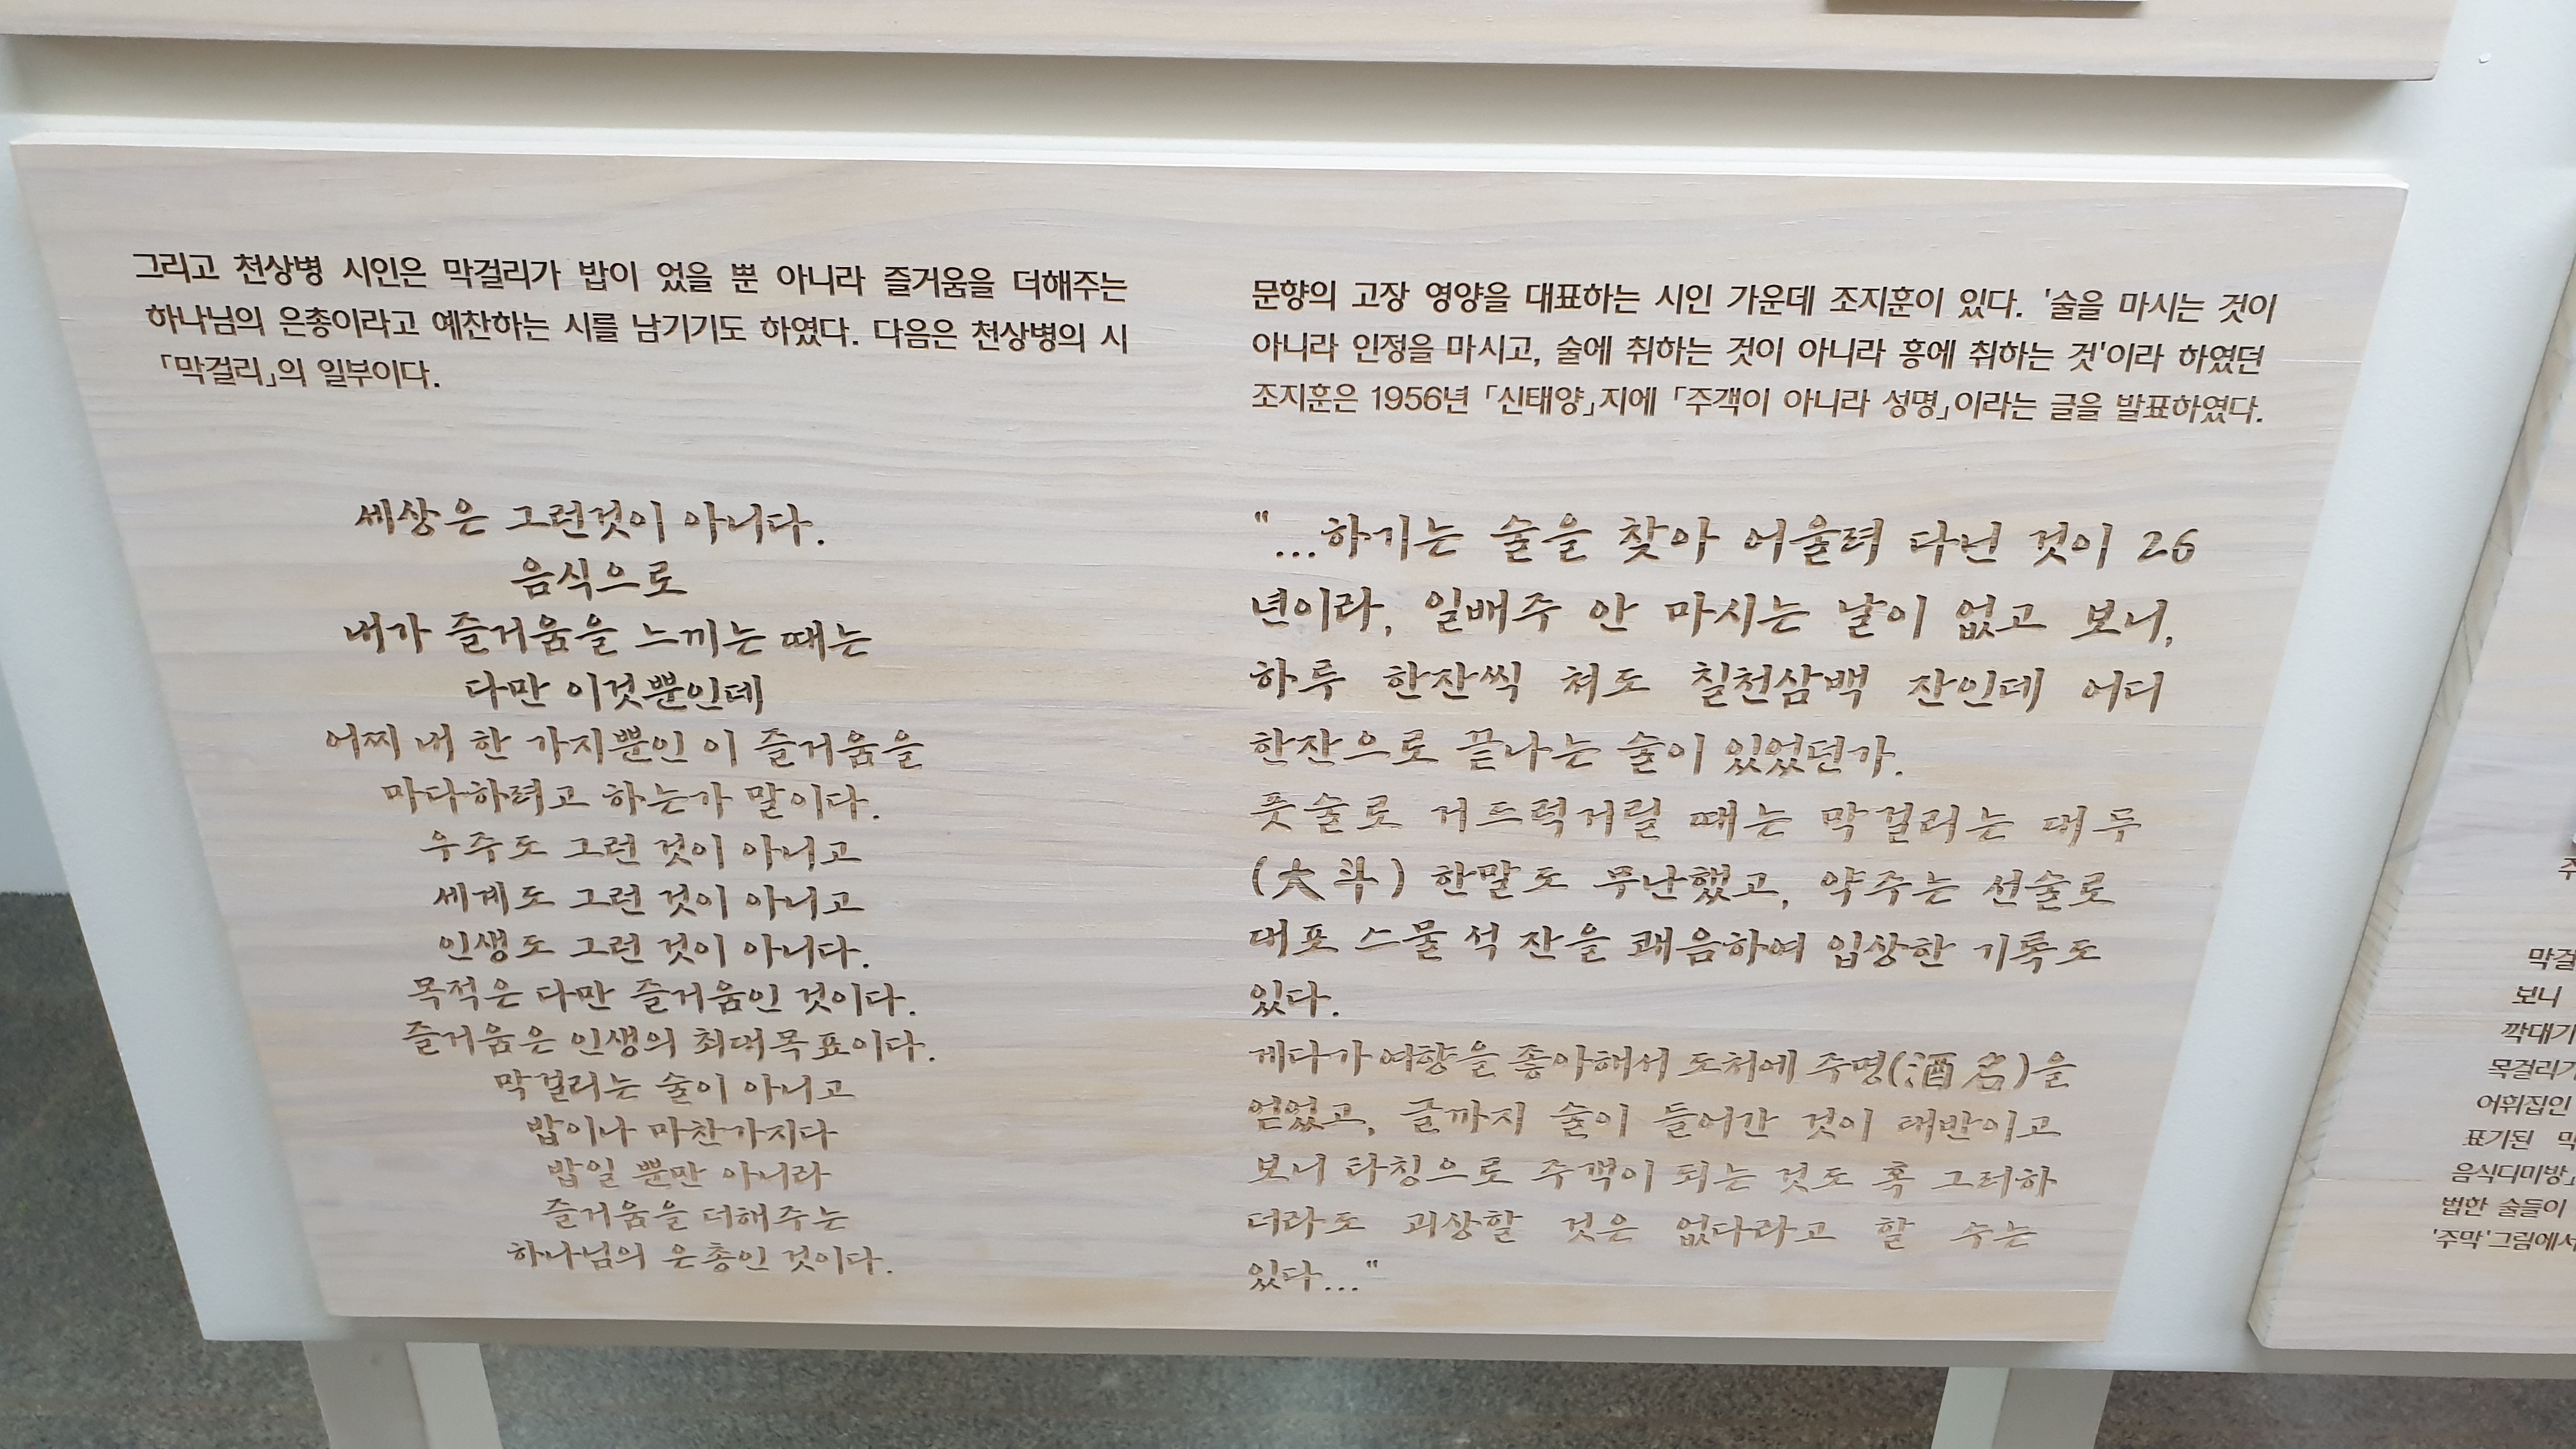 그리고 천상병 시인은 막걸리가 밥이 었을 뿐 아니라 즐거움을 더해주는
하나님의 은총이라고 예찬하는 시를 남기기도 하였다. 다음은 천상병의 시
「막걸리」의 일부이다.
세상은 그런것이 아니다.
음식으로
내가 즐거움을 느끼는 때는
다만 이것뿐인데
어찌 내 한 가지뿐인 이 즐거움을
마다하려고 하는가 말이다.
우주도 그런 것이 아니고
세계도 그런 것이 아니고
인생도 그런 것이 아니다.
목적은 다만 즐거움인 것이다.
즐거움은 인생의 최대목표이다.
막걸리는 술이 아니고
밥이나 마찬가지다
밥일 뿐만 아니라
즐거움을 더해주는
하나님의 은총인 것이다.
문향의 고장 영양을 대표하는 시인 가운데 조지훈이 있다. '술을 마시는 것이
아니라 인정을 마시고, 술에 취하는 것이 아니라 흥에 취하는 것'이라 하였던
조지훈은 1956년 「신태양」지에 「주객이 아니라 성명」이라는 글을 발표하였다.
"...하기는 술을 찾아 어울려 다닌 것이 26
년이라, 일배주 안 마시는 날이 없고 보니,
하루 한잔씩 쳐도 칠천삼백 잔인데 어디
한잔으로 끝나는 술이 있었던가.
풋술로 거드럭거릴 때는 막걸리는 대두
(大斗) 한말도 무난했고, 약주는 선술로
대포 스물 석 잔을 쾌음하여 입상한 기록도
있다.
게다가 여향을 좋아해서 도처에 주명(酒名)을
얻었고, 글까지 술이 들어간 것이 태반이고
보니 타칭으로 주객이 되는 것도 혹 그러하
더라도 괴상할 것은 없다라고 할 수는
있다..."
막걸
보니
깍대기
목걸리가
어휘집인
표기된 막
음식디미방」
법한 술들이
'주막'그림에서